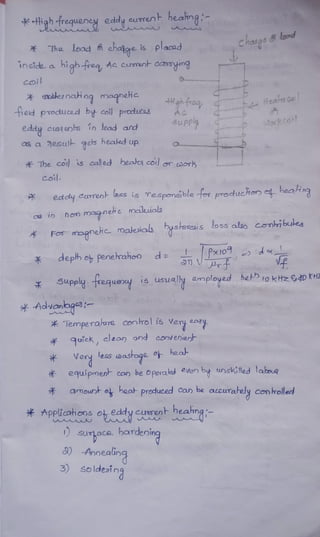 * High frequency eddy current heating:-
* The load or charge is placed
inside a high-freq. Ac current carrying
coil
* alternating magnetic
field produced by coil produces
eddy currents in load and
as a result gets heated up
Charge or load
High freq.
AC
supply
Heater coil
or
work coil
* The coil is called heater coil or work
coil.
* eddy current loss is responsible for production of heating
in non magnetic materials
* For magnetic materials hysteresis loss also contributes
* depth of penetration d = 1/2π √(ρ×10⁹/μr f) => d ∝ 1/√f
* supply frequency is usually employed betn 10 KHz & 40 KHz
* Advantages:-
* Temperature control is very easy
* quick, clean and convenient
* Very less wastage of heat
* equipment can be operated even by unskilled labour
* amount of heat produced can be accurately controlled
* Applications of eddy current heating:-
1) surface hardening
2) Annealing
3) Soldering